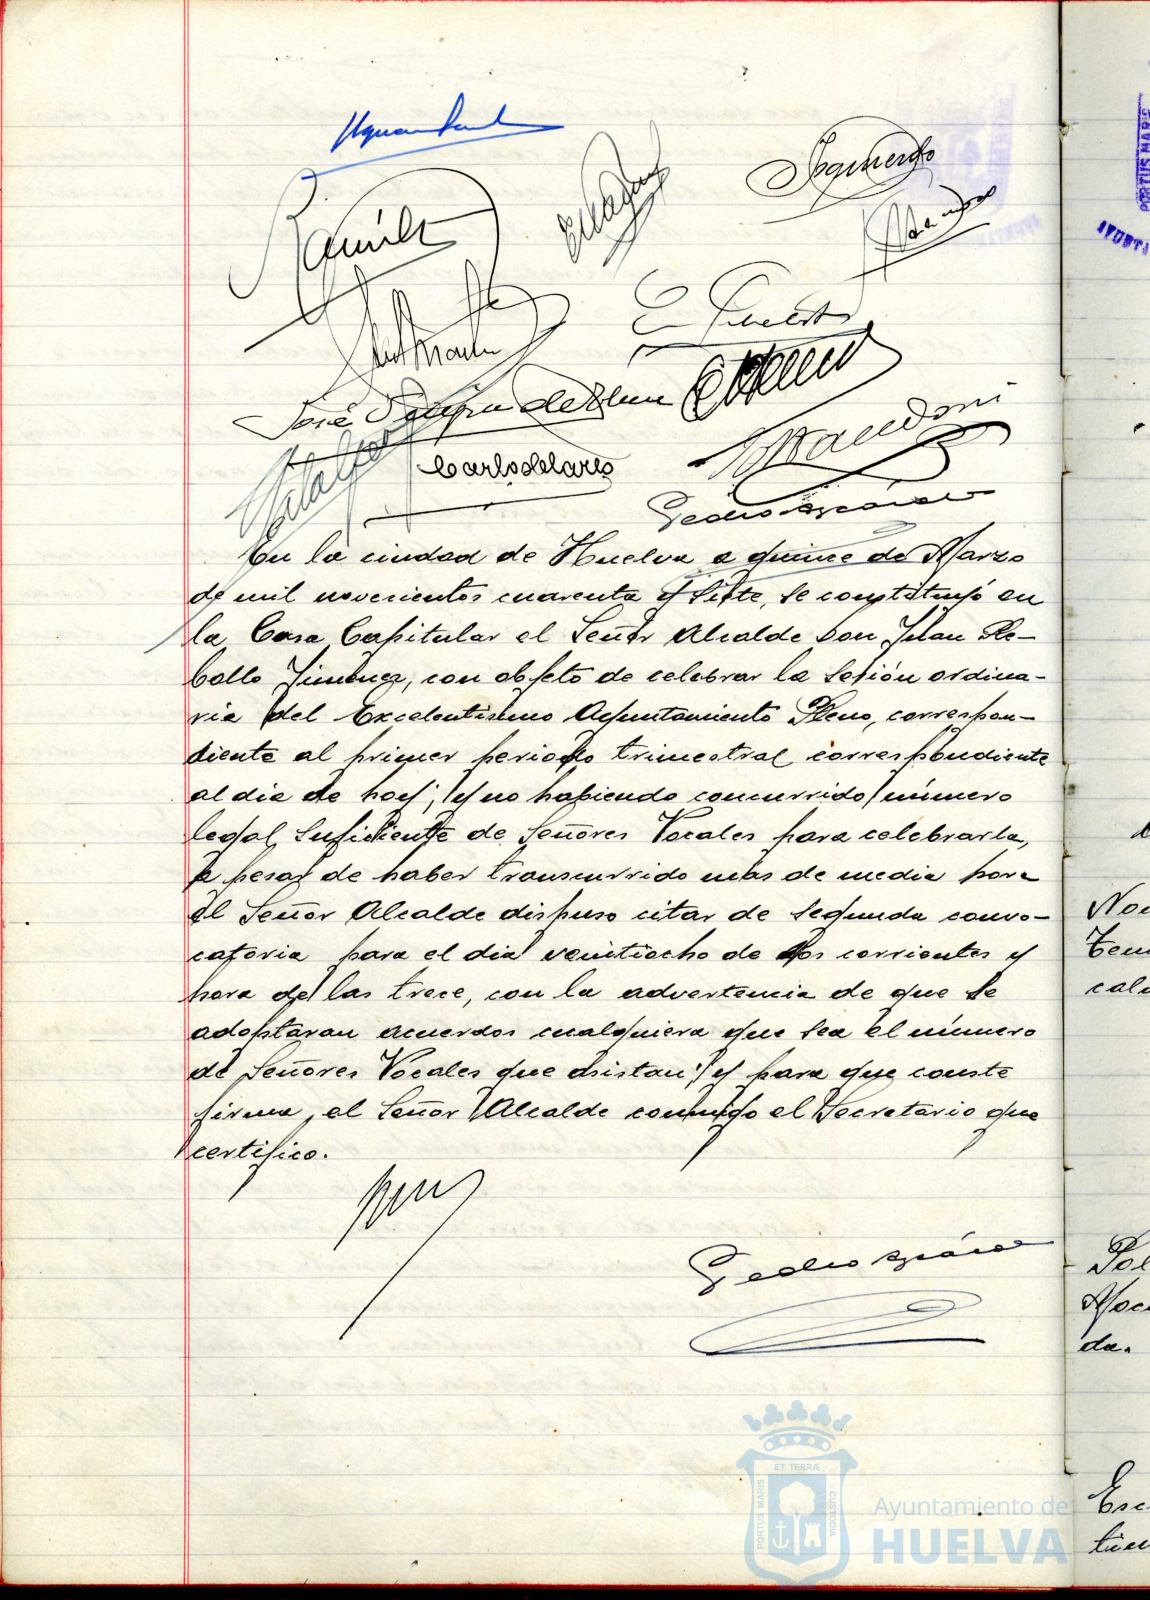 Izquierdo
José
Carlos de
Pedro
En la ciudad de Huelva a quince de Marzo
de mil novecientos cuarenta y siete, se constituyó en
la Casa Capitular el Señor Alcalde Don Juan Re-
bollo Jimenez, con objeto de celebrar la sesión ordina-
ria del Excelentisimo Ayuntamiento Pleno, correspon-
diente al primer periodo trimestral correspondiente
al dia de hoy; y no habiendo concurrido número
legal suficiente de Señores Vocales para celebrarla,
a pesar de haber transcurrido mas de media hora
el Señor Alcalde dispuso citar de segunda convo-
catoria para el dia veintiocho de los corrientes y
hora de las trece, con la advertencia de que se
adoptaran acuerdos cualquiera que sea el número
de Señores Vocales que asistan; y para que conste
firma, el Señor Alcalde conmigo el Secretario que
certifico.
Pedro
ET TERRÆ
PORTUS MARIS
CUSTODIA
Ayuntamiento de
HUELVA
PORTUS MARIS
da.